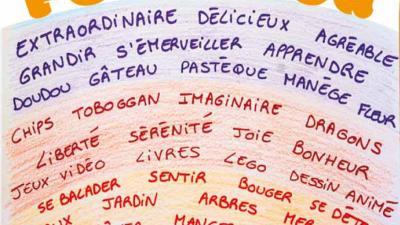 EXTRAORDINAIRE DÉLICIEUX AGRÉABLE
GRANDIR S'ÉMERVEILLER APPRENDRE
DOUDOU GÂTEAU PASTÈQUE MANÈGE FLEUR
CHIPS TOBOGGAN IMAGINAIRE DRAGONS
LIBERTÉ SÉRÉNITÉ JOIE BONHEUR
JEUX VIDÉO LIVRES LEGO DESSIN ANIMÉ
SE BALADER SENTIR BOUGER SE DÉTE
JARDIN ARBRES